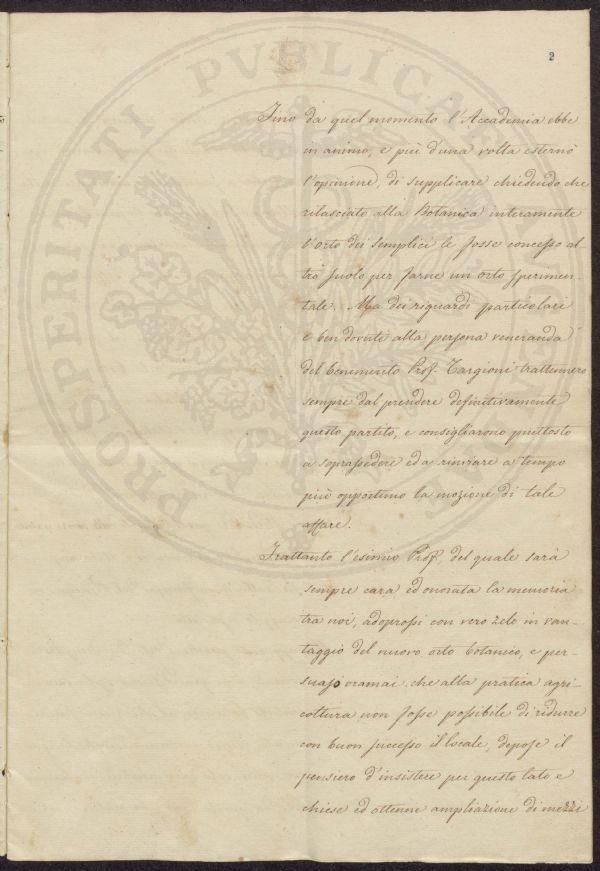 2
PROSPERITATI PUBLICAE AUGENDAE
Fino da quel momento l'Accademia ebbe
in animo, e più d'una volta esternò
l'opinione, di supplicare chiedendo che
rilasciato alla Botanica interamente
l'orto dei semplici le fosse concesso al
tro suolo per farne un orto sperimen-
tale. Ma dei riguardi particolari
e ben dovuti alla persona veneranda
del benemerito Prof. Targioni trattennero
sempre dal prendere definitivamente
questo partito, e consigliarono piuttosto
a soprassedere ed a rinviare a tempo
più opportuno la mozione di tale
affare.
Frattanto l'esimio Prof. del quale sarà
sempre cara ed onorata la memoria
tra noi, adoprossi con vero zelo in van-
taggio del nuovo orto botanico, e per-
suaso oramai che alla pratica agri-
coltura non fosse possibile di ridurre
con buon successo il locale, depose il
pensiero d'insistere per questo lato e
chiese ed ottenne ampliazione di mezzi